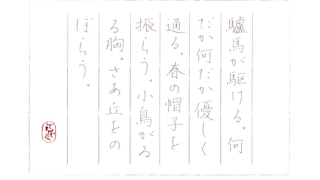 驢馬が駆ける。何
だか何だか優しく
通る。春の帽子を
振らう。小鳥がゐ
る胸。さあ丘をの
ぼらう。